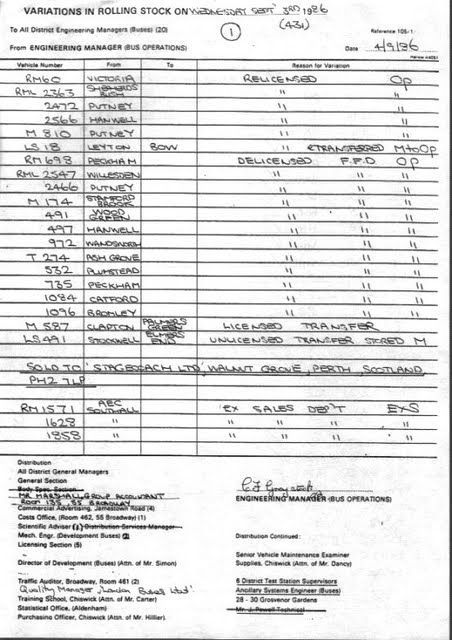 VARIATIONS IN ROLLING STOCK ON WEDNESDAY SEPT 3RD 1986
(431)
To All District Engineering Managers (Buses) (20) 1 Reference 105/1
From ENGINEERING MANAGER (BUS OPERATIONS) Date 4/9/86
Vehicle Number From To Reason for Variation
RM60 VICTORIA RELICENSED Op
RML 2363 SHEPHERDS BUSH " "
2472 PUTNEY " "
2566 HANWELL " "
M 810 PUTNEY " "
LS 18 LEYTON BOW " & TRANSFERRED M to Op
RM 698 PECKHAM DELICENSED F.F.D Op
RML 2547 WILLESDEN " " "
2466 PUTNEY " " "
M 174 STAMFORD BROOK " " "
491 WOOD GREEN " " "
497 HANWELL " " "
972 WANDSWORTH " " "
T 274 ASH GROVE " " "
532 PLUMSTEAD " " "
735 PECKHAM " " "
1084 CATFORD " " "
1096 BROMLEY " " "
M 587 CLAPTON PALMERS GREEN LICENSED TRANSFER
LS 491 STOCKWELL ELMERS END UNLICENSED TRANSFER STORED M
SOLD TO 'STAGECOACH LTD', WALNUT GROVE, PERTH SCOTLAND
PH2 7LP
RM 1571 AEC SOUTHALL 'EX SALES DEP'T EXS
1628 " " " " "
1858 " " " " "
Distribution
All District General Managers
General Section
Body Spec. Section
MR MARSHALL GROUP ACCOUNTANT
ROOM 135, 55 BROADWAY
Commercial Advertising, Jamestown Road (4)
Costs Office, (Room 462, 55 Broadway) (1)
Scientific Adviser (1) Distribution Services Manager
Mech. Engr. (Development Buses) (2)
Licensing Section (5)
Director of Development (Buses) (Attn. of Mr. Simon)
Traffic Auditor, Broadway, Room 461 (2)
Quality Manager, London Buses Ltd
Training School, Chiswick (Attn. of Mr. Carter)
Statistical Office, (Aldenham)
Purchasing Officer, Chiswick (Attn. of Mr. Hillier).
ENGINEERING MANAGER (BUS OPERATIONS)
Distribution Continued:
Senior Vehicle Maintenance Examiner
Supplies, Chiswick (Attn. of Mr. Dancy)
6 District Test Station Supervisors
Ancillary Systems Engineer (Buses)
28 - 30 Grosvenor Gardens
Mr. J. Powell Technical